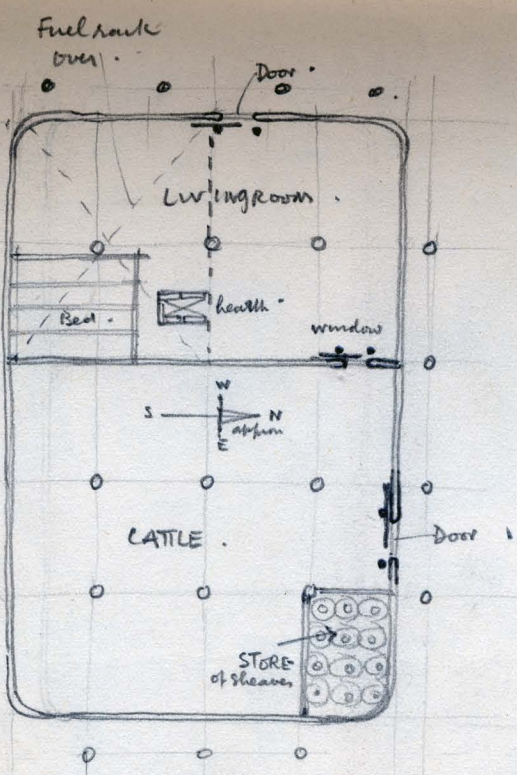 Fuel rack
over.
Door.
LIVINGROOM.
Bed.
hearth.
window
W
S N
approx
E
CATTLE.
Door
STORE
of sheaves